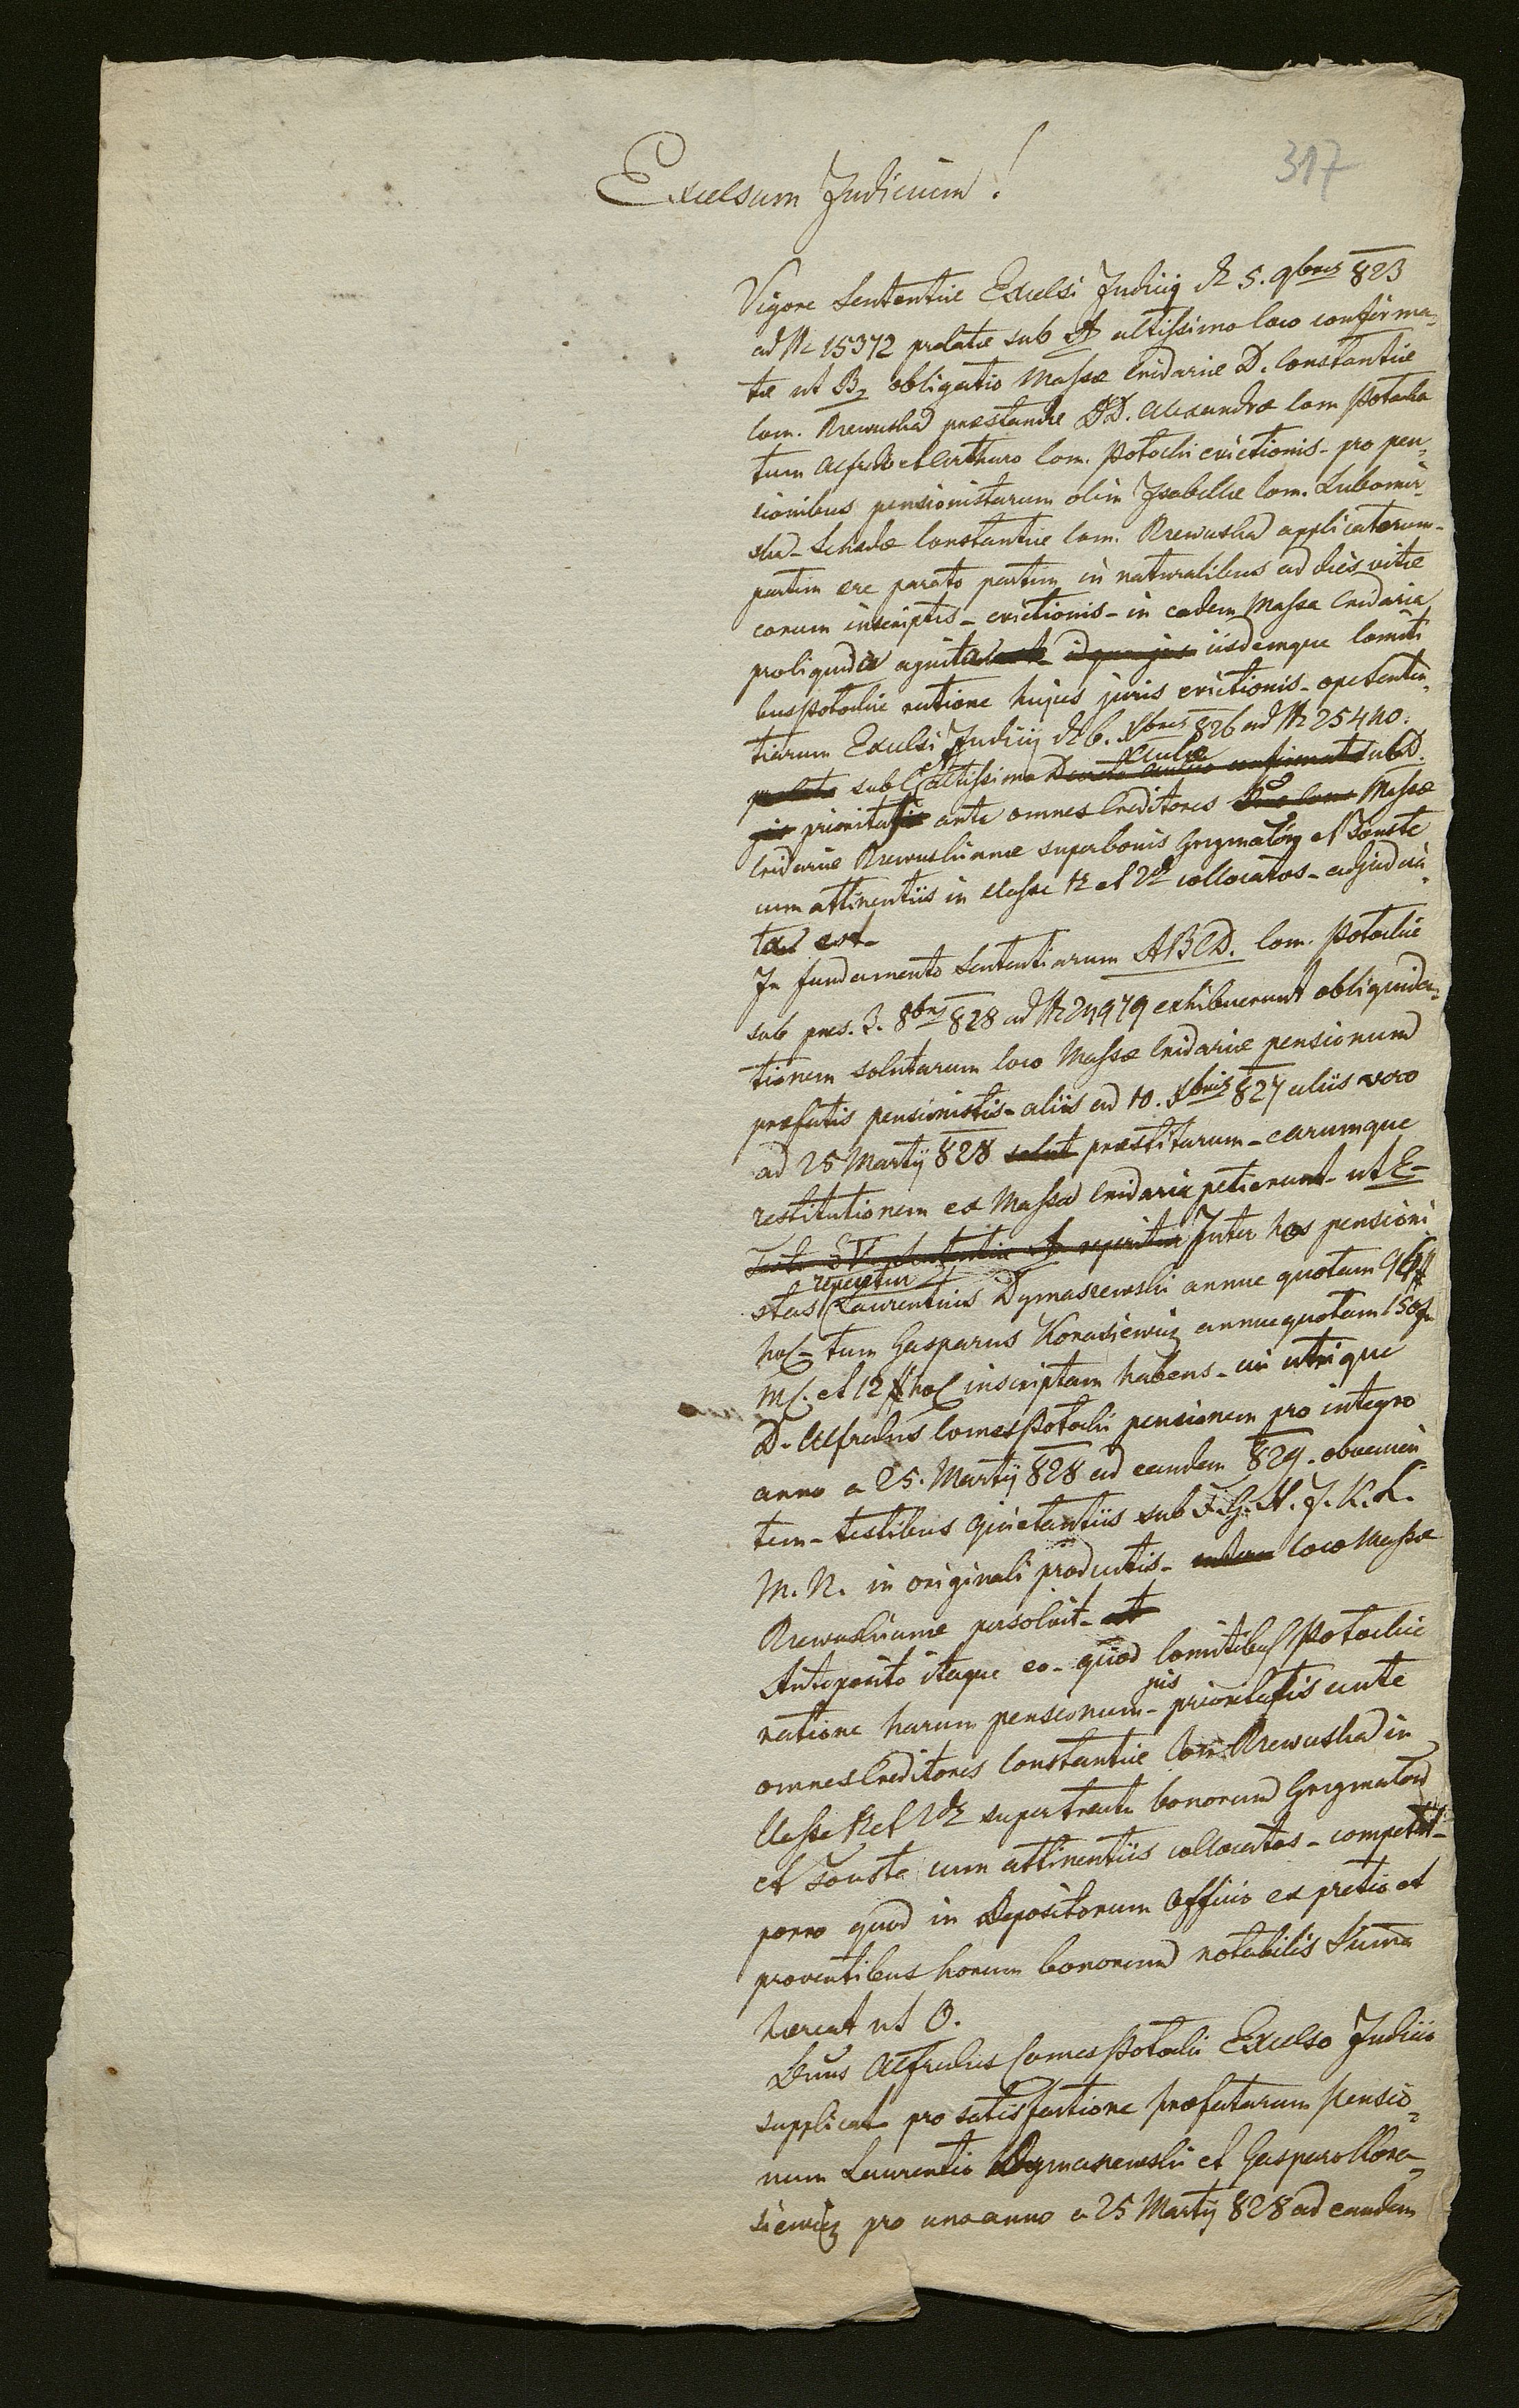 317
Excelsum Judicium!
Vigore Sententiæ Excelsi Judicij dt 5. 9bris 823
ad Nr 15372 prolatæ sub A altissimo loco confirma-
tæ ut B, obligatio Massæ Cridariæ D. Constantiæ
Com. Rzewuska præstandæ DD. Alexandræ Com Potocka
tum Alfredo et Arthuro Com. Potockie evictionis - pro pen-
sionibus pensionistarum olim Isabellæ Com. Lubomir-
ska - Schedæ Constantiæ Com. Rzewuska applicatorum -
partim ære parato partim in naturalibus ad dies vitæ
eorum inscriptis - evictionis - in eadem Massa Cridaria
pro liquida agnita iisdemque Comiti
bus Potockie ratione hujus juris evictionis - ope Senten-
tiarum Excelsi Judicij dt 6. Xbris 826 ad Nr 25440.
sub C altissimo Decreto Aulico confirmat sub D.
jus prioritatis ante omnes Creditores Massæ
Cridariæ Rzewuskianæ super bonis Grzymałów et Touste
cum attinentiis in Classe 1 et 2da collocatos - adjudica-
ta est -
In fundamento Sententiarum ABCD. Com. Potockie
sub præs. 3. 8bris 828 ad Nr 24979 exhibuerunt obliquida-
tionem solutarum loco Massæ Cridariæ pensionum
præfatis pensionistis - aliis ad 10. Xbris 827 aliis vero
ad 25 Martij 828 solut præstitarum - earumque
restitutionem ex Massa Cridaria petierunt - ut E -
Sententiæ A reperitur Inter hos pensioni
reperitur
stas Laurentius Dymaszewski annue quotam 96 #
hol - tum Gasparus Korasiewicz annue quotam 150 fr
M. et 12 # hol inscriptam habens - cui utrique
D. Alfredus Comes Potocki pensionem pro integro
anno a 25. Martij 828 ad eandem 829. obvenien
tem - testibus quietantiis sub F. G. H. J. K. L.
M. N. in originali productis - loco Massæ
Rzewuskianæ persolvit -
Anteposito itaque eo - quod Comitibus Potockie
ratione harum pensionum - jus prioritatis ante
omnes Creditores Constantiæ Com Rzewuska in
Classe 1 et 2da super pretio bonorum Grzymałów
et Touste cum attinentiis collocatos - competat -
porro quod in Depositorum Officio ex pretio et
proventibus horum bonorum notabilis Summa
hæreat ut O.
Alfredus Comes Potocki Excelso Judicio
supplicat pro satisfactione præfatarum Pensio-
num Laurentio Dymaszewski et Gasparo Kora-
siewicz pro uno anno a 25 Martij 828 ad eandem